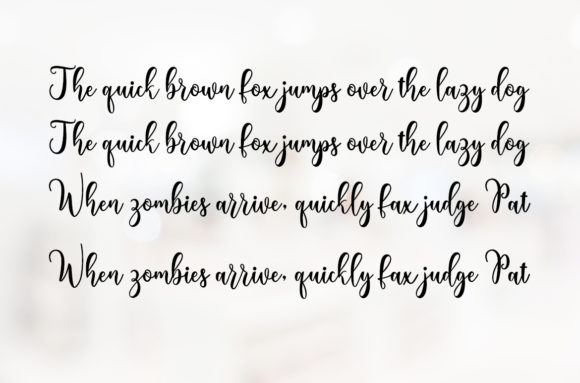 The quick brown fox jumps over the lazy dog
The quick brown fox jumps over the lazy dog
When zombies arrive, quickly fax judge Pat
When zombies arrive, quickly fax judge Pat